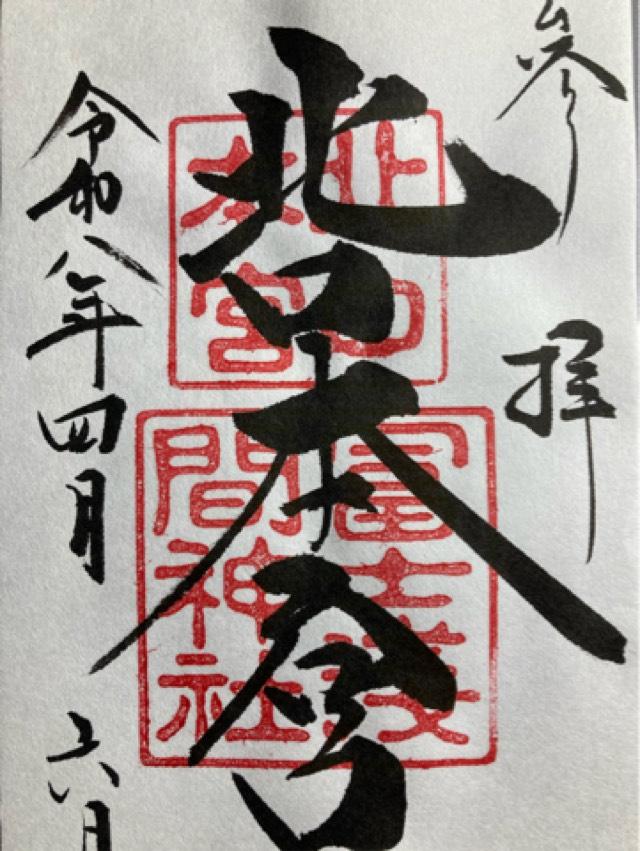 参拝
北口本宮
北口
本宮
冨士浅
間神社
令和八年四月六日